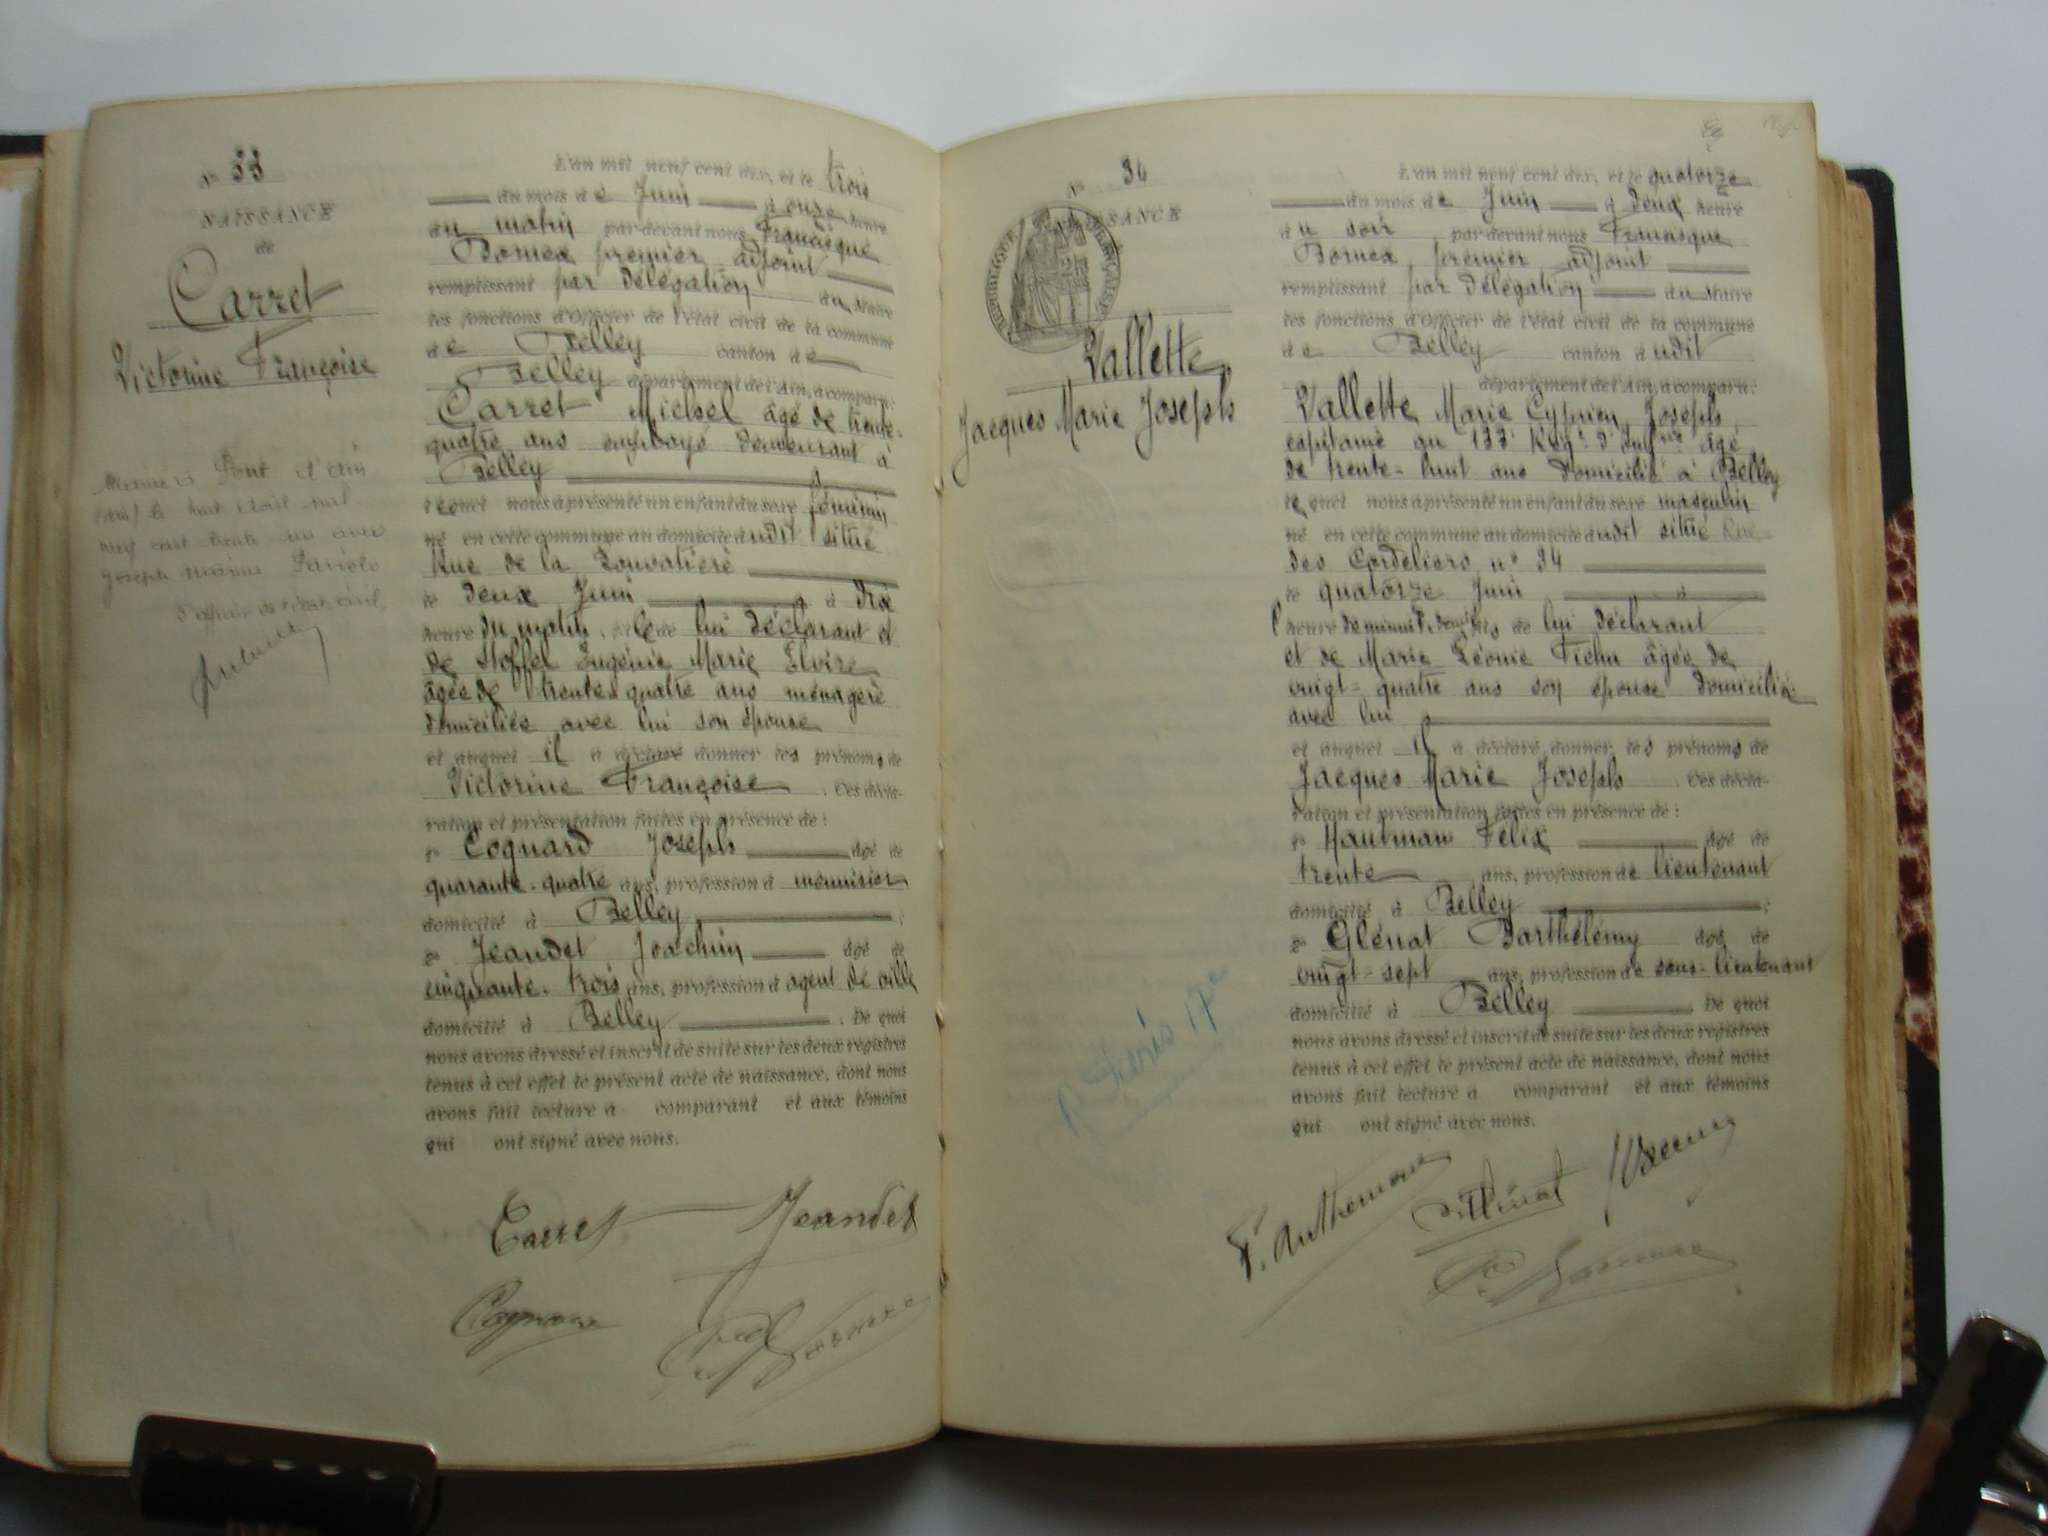 N° 33
NAISSANCE
de
Carret
Victorine Françoise
Mariée à Pont d'Ain
huit mil
neuf cent trente un avec
Joseph Marius
L'officier de l'état civil,
L'an mil neuf cent dix, et le trois
du mois de Juin à onze heure
du matin par devant nous Francisque
Bornex premier adjoint
remplissant par délégation du Maire
les fonctions d'Officier de l'état civil de la commune
de Belley canton de
Belley département de l'Ain, a comparu:
Carret Michel âgé de trente-
quatre ans employé demeurant à
Belley
lequel nous a présenté un enfant du sexe féminin
né en cette commune au domicile sudit situé
Rue de la
le deux Juin à dix
heure du matin, de lui déclarant et
de Stoffel Eugénie Marie Elvire
âgée de trente quatre ans ménagère
domiciliée avec lui son épouse
et auquel il a déclaré donner les prénoms de
Victorine Françoise . Ces décla-
ration et présentation faites en présence de :
1° Cognard Joseph âgé de
quarante-quatre ans, profession d menuisier
domicilié à Belley ;
2° Jeandet Joachim âgé de
cinquante-trois ans, profession d agent de ville
domicilié à Belley . De quoi
nous avons dressé et inscrit de suite sur les deux registres
tenus à cet effet le présent acte de naissance, dont nous
avons fait lecture a comparant et aux témoins
qui ont signé avec nous.
Carret Jeandet
Cognard
Fque Bornex
N° 34
NAISSANCE
RÉPUBLIQUE FRANÇAISE
Vallette
Jacques Marie Joseph
L'an mil neuf cent dix, et le quatorze
du mois de Juin à deux heure
du soir par devant nous Francisque
Bornex premier adjoint
remplissant par délégation du Maire
les fonctions d'Officier de l'état civil de la commune
de Belley canton dudit
département de l'Ain, a comparu:
Vallette Marie Cyprien Joseph
capitaine au 133e Régt d'Infrie âgé
de trente-huit ans domicilié à Belley
lequel nous a présenté un enfant du sexe masculin
né en cette commune au domicile sudit situé Rue
des Cordeliers n° 34
le quatorze Juin à
heure de minuit, demi fils de lui déclarant
et de Marie Léonie Fichu âgée de
vingt-quatre ans son épouse domiciliée
avec lui
et auquel il a déclaré donner les prénoms de
Jacques Marie Joseph . Ces décla-
ration et présentation faites en présence de :
1° Hautman Félix âgé de
trente ans, profession de lieutenant
domicilié à Belley ;
2° Glénat Barthélémy âgé de
vingt-sept ans, profession de sous-lieutenant
domicilié à Belley De quoi
nous avons dressé et inscrit de suite sur les deux registres
tenus à cet effet le présent acte de naissance, dont nous
avons fait lecture a comparant et aux témoins
qui ont signé avec nous.
Paris 17e